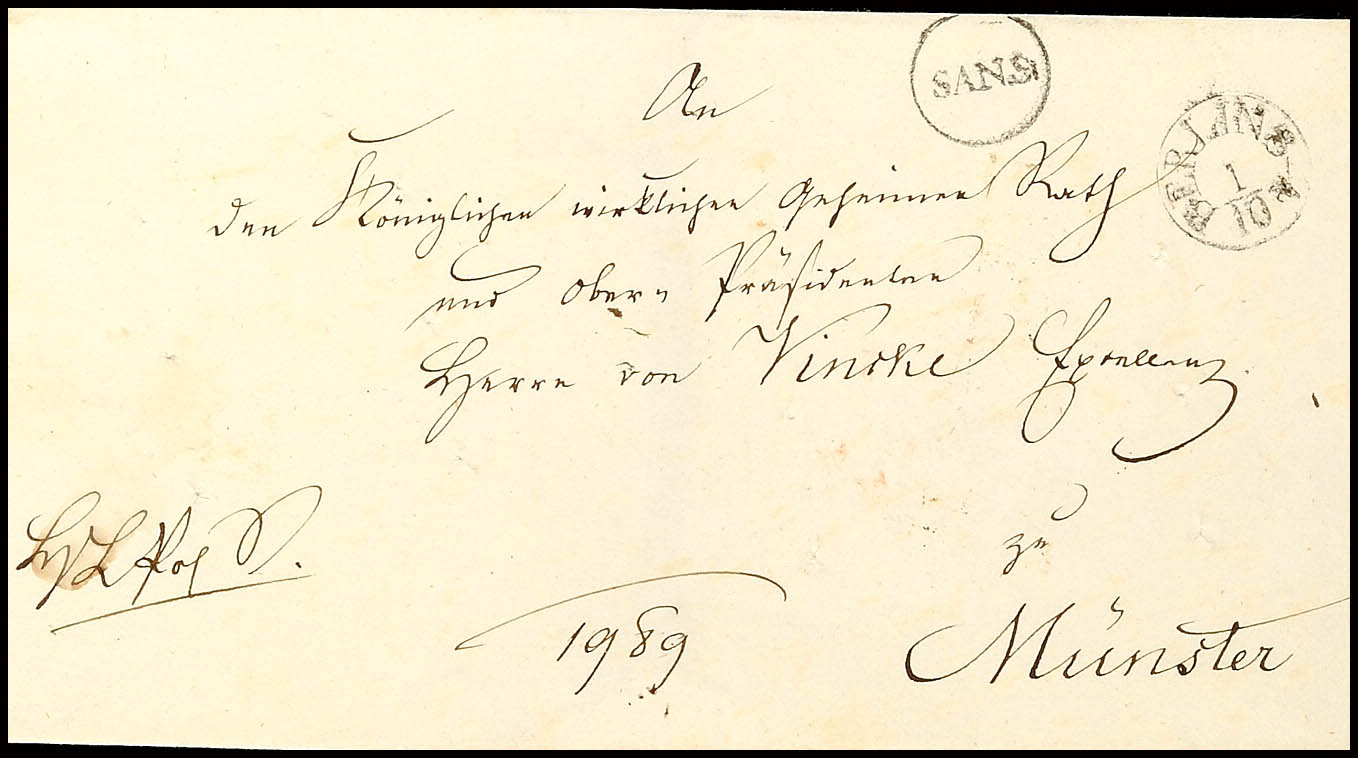 SANS
BERLIN 5-
1
10
An
den Königlichen wirklichen Geheimen Rath
und Ober-Präsidenten
Herrn von Vincke Excellenz
zu
1989
Münster